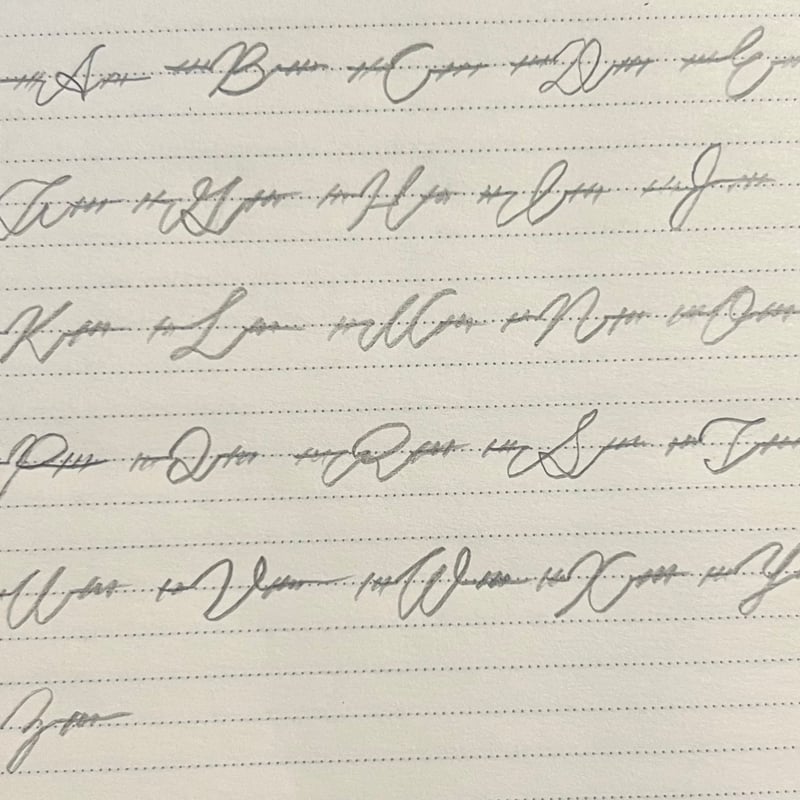 A B C D E
F G H I J
K L M N O
P Q R S T
U V W X Y
Z